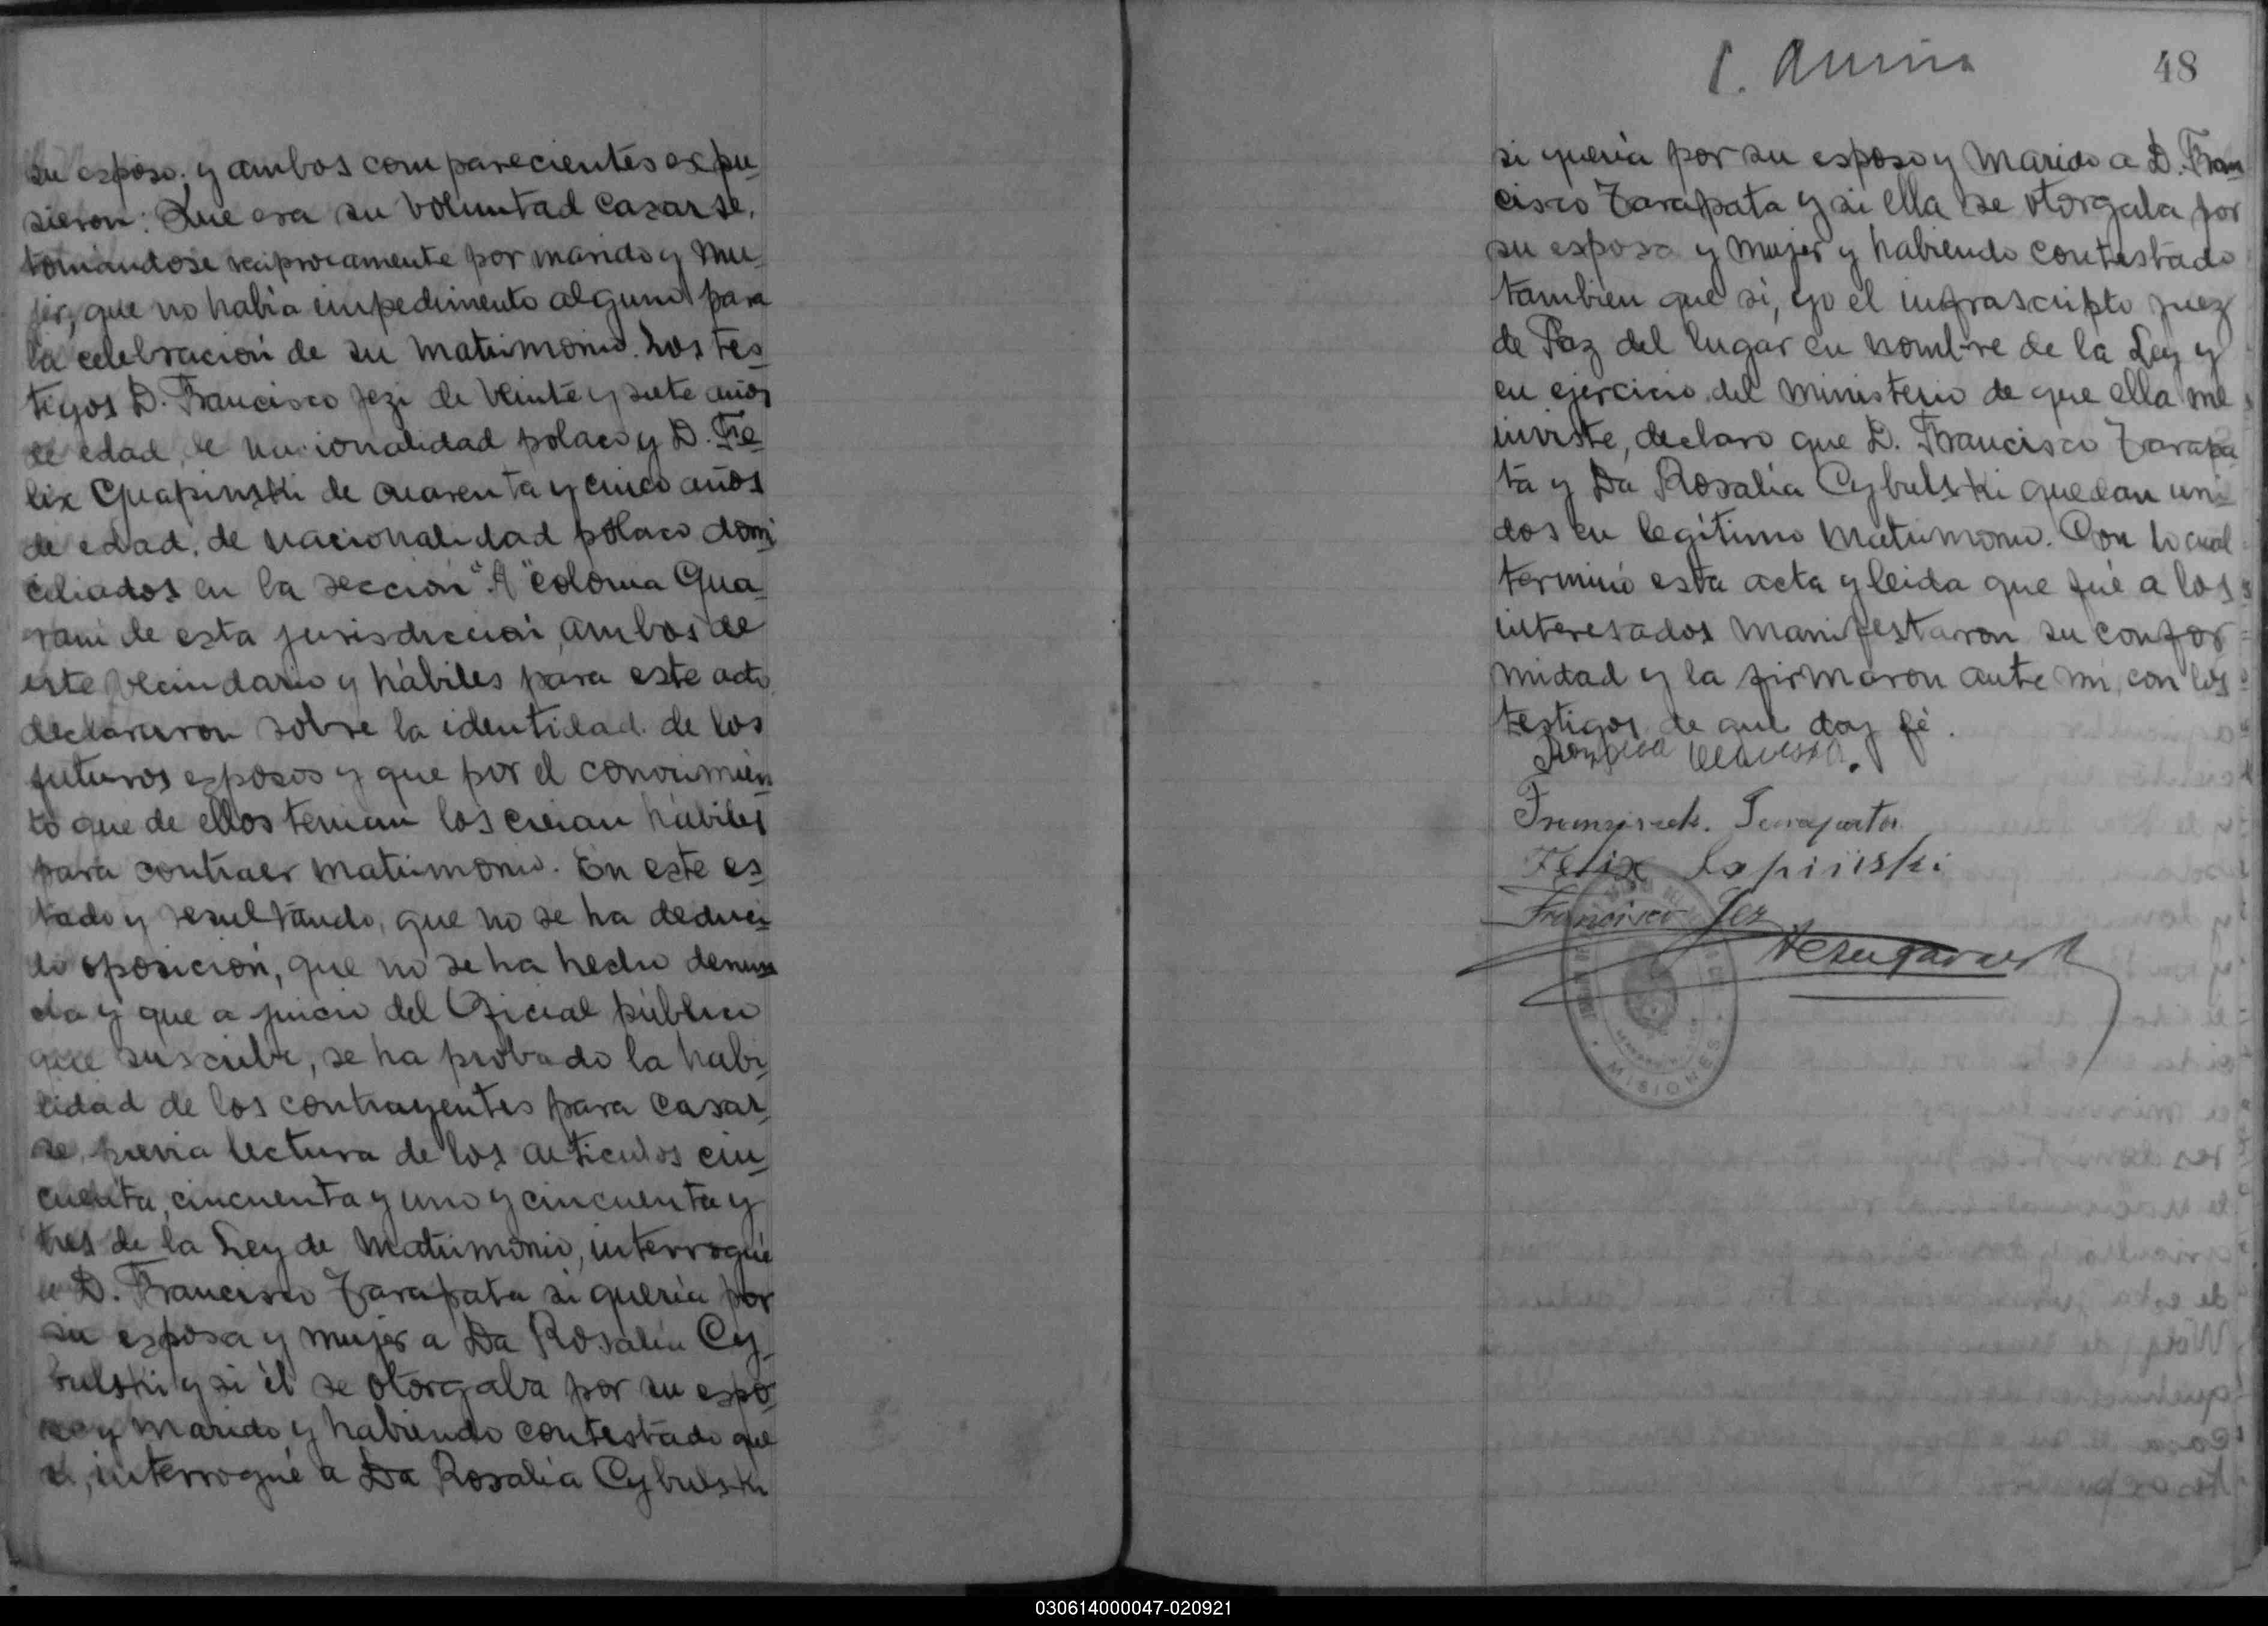 su esposo; y ambos comparecientes expu-
sieron: Que era su voluntad casarse,
tomándose reciprocamente por marido y mu-
jer, que no había impedimento alguno para
la celebración de su matrimonio. Los tes-
tigos D. Francisco Jezi de veinte y siete años
de edad, de nacionalidad polaco y D. Fe-
lix Guapinski de cuarenta y cinco años
de edad, de nacionalidad polaco domi-
ciliados en la sección "A" colonia Gua-
raní de esta jurisdicción, ambos de
este vecindario y hábiles para este acto
declararon sobre la identidad de los
futuros esposos y que por el conocimien-
to que de ellos tenían los creían hábiles
para contraer matrimonio. En este es-
tado y resultando, que no se ha deduci-
do oposición, que no se ha hecho denun-
cia y que a juicio del Oficial público
que suscribe, se ha probado la habi-
lidad de los contrayentes para casar-
se, previa lectura de los artículos cin-
cuenta, cincuenta y uno y cincuenta y
tres de la Ley de Matrimonio, interrogué
a D. Francisco Tarapata si quería por
su esposa y mujer a Da Rosalía Cy-
bulski y si él se otorgaba por su espo-
so y marido y habiendo contestado que
si, interrogué a Da Rosalía Cybulski
48
si quería por su esposo y marido a D. Fran-
cisco Tarapata y si ella se otorgaba por
su esposa y mujer y habiendo contestado
tambien que sí, yo el infrascripto juez
de Paz del lugar en nombre de la Ley y
en ejercicio del ministerio de que ella me
inviste, declaro que D. Francisco Tarapa-
ta y Da Rosalía Cybulski quedan uni-
dos en legítimo matrimonio. Con lo cual
terminó esta acta y leida que fué a los
interesados manifestaron su confor-
midad y la firmaron ante mi, con los
testigos, de que doy fé.
Franziszek. Tarapata
Felix Lapiński
Francisco Jez
MISIONES
030614000047-020921